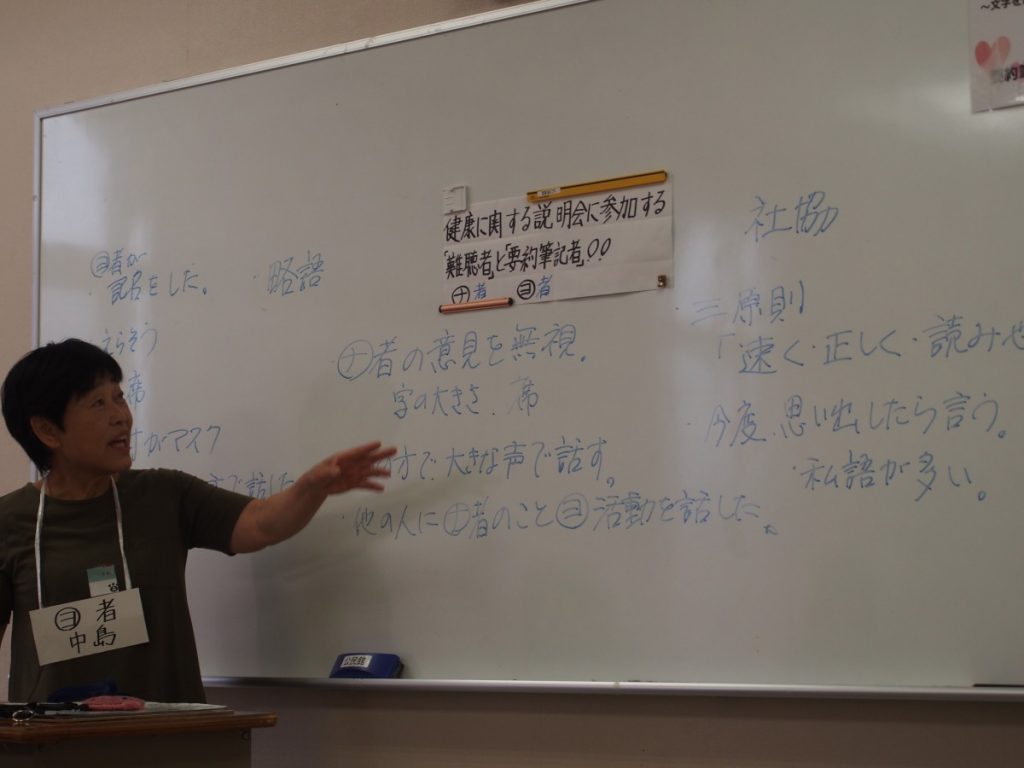 健康に関する説明会に参加する
「難聴者」と「要約筆記者」〇〇
㋤者 ㋵者
㋵者が
・記名をした。
・略語
えらそう
席
すがマスク
で話した
㋤者の意見を無視。
字の大きさ、席
すで、大きな声で話す。
・他の人に㋤者のこと㋵活動を話した。
社協
・三原則
「速く・正しく・読みや
・今度、思い出したら言う。
・私語が多い。
㋵者
中島
公民館
～文字を
約筆